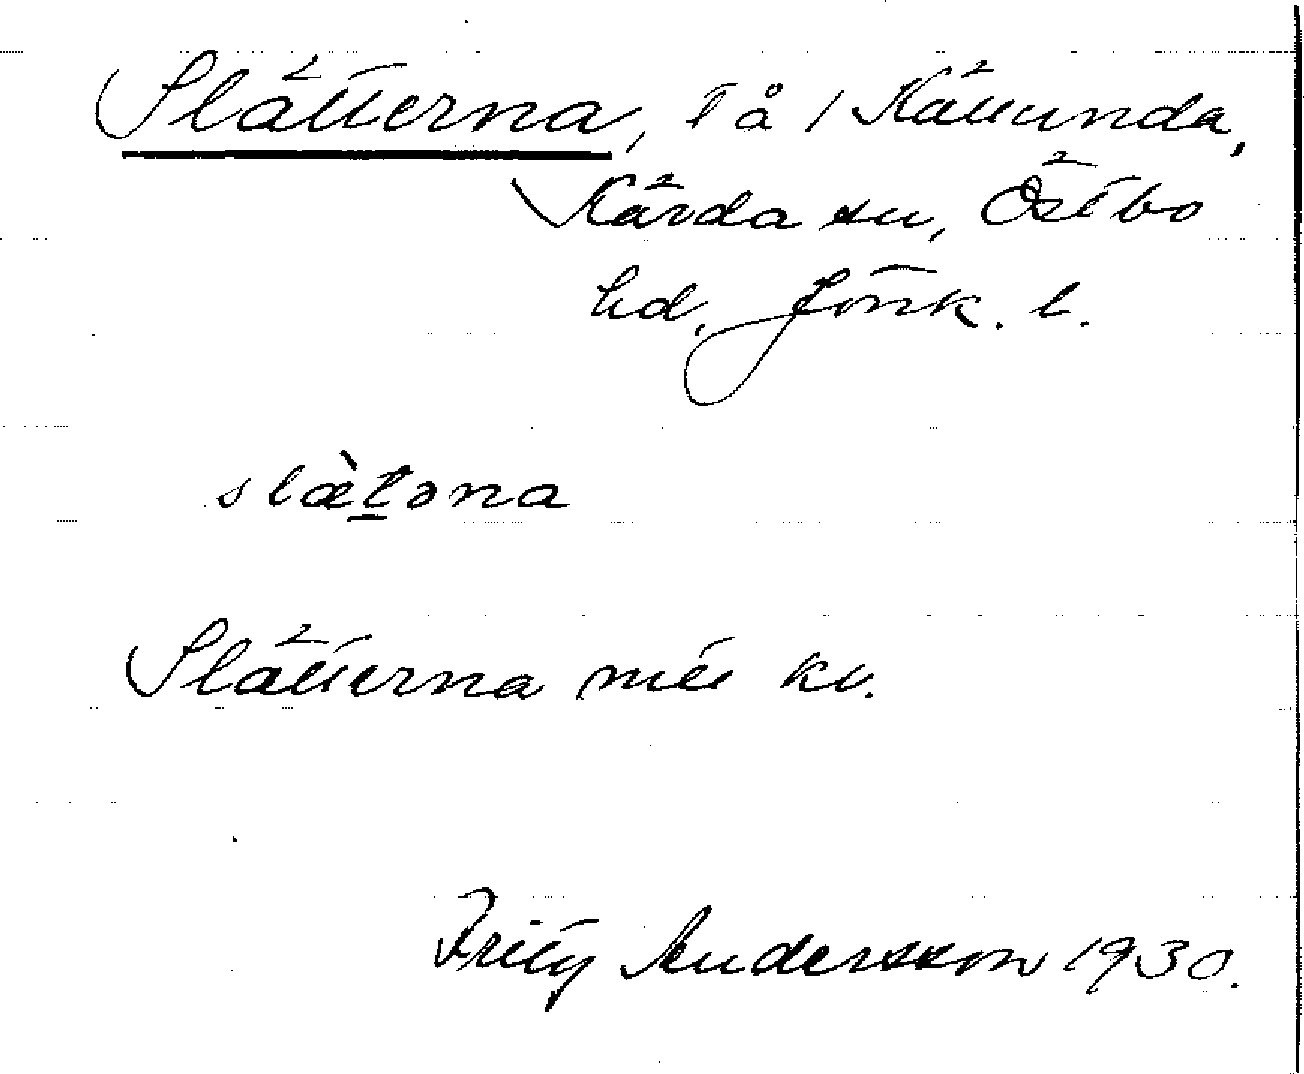 Slätterna, t å 1 Källunda,
Kärda sn, Östbo
hd, Jönk. l.
slàt̲əna
Slätterna mtl kv.
Fritz Andersson 1930.